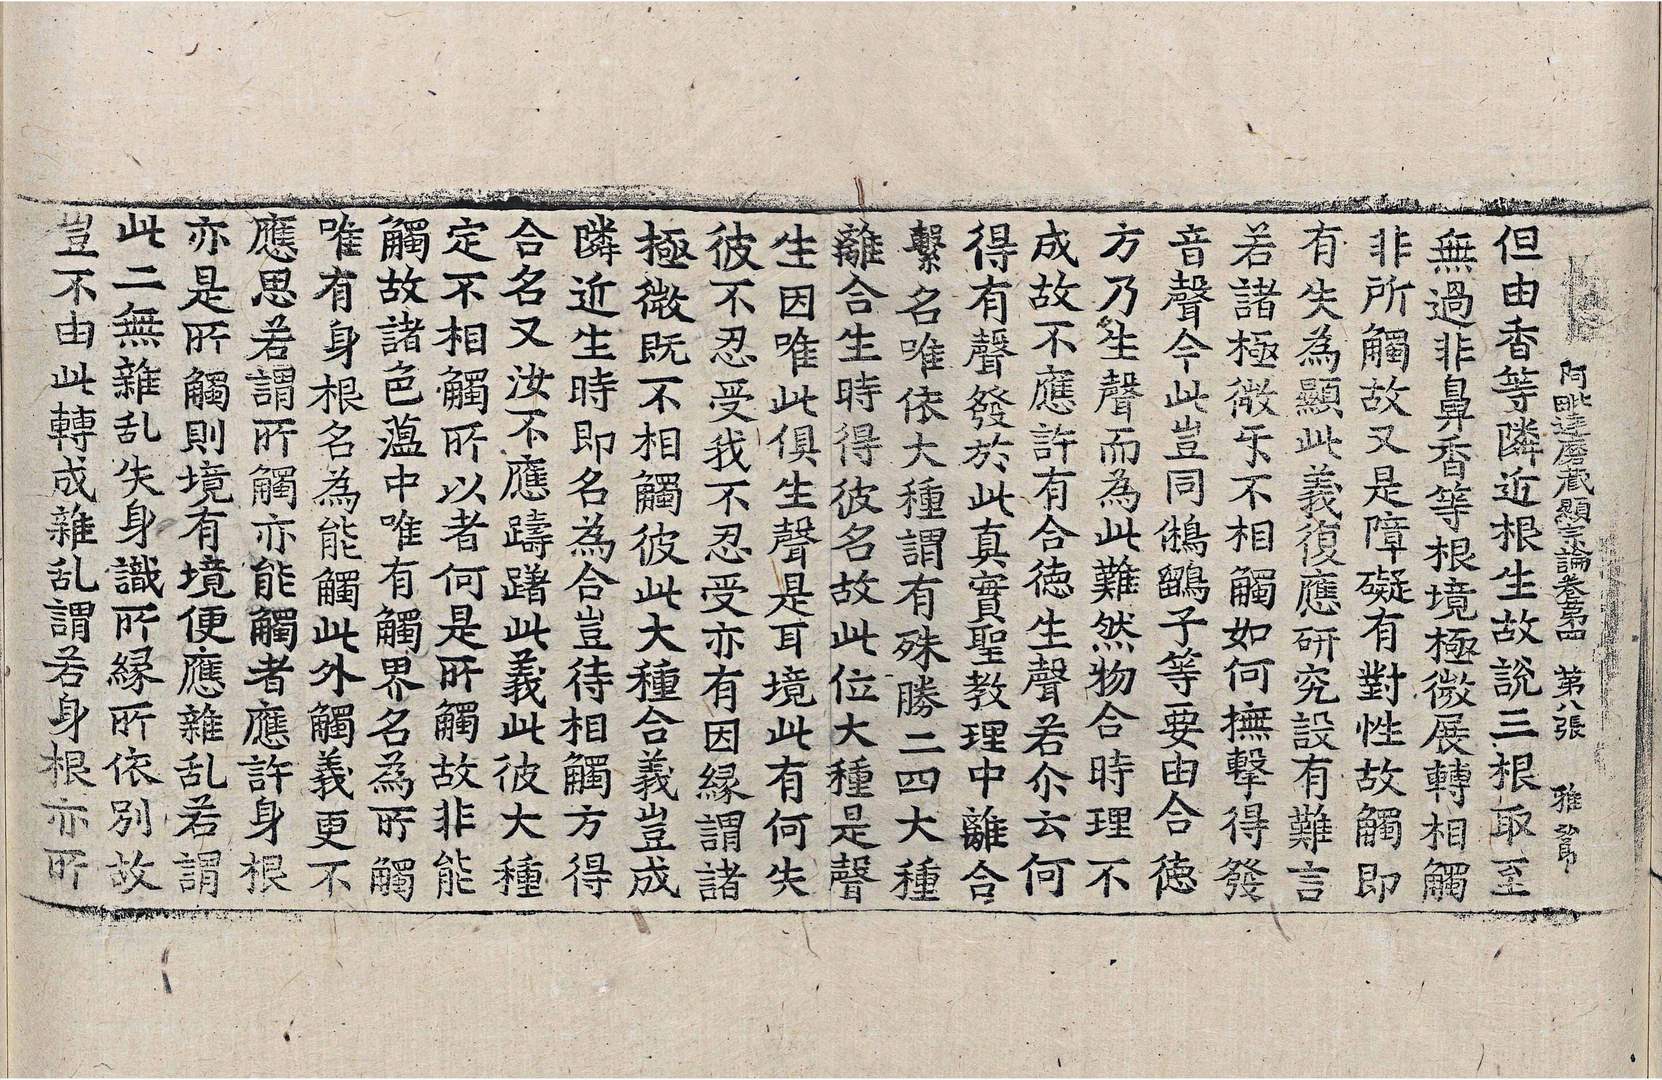 阿毗達磨藏顯宗論卷第四　第八張　雅
但由香等隣近根生故說三根取至
無過非鼻香等根境極微展轉相觸
非所觸故又是障礙有對性故觸即
有失為顯此義復應研究設有難言
若諸極微乐不相觸如何撫擊得發
音聲今此豈同鵂鶹子等要由合徳
方乃生聲而為此難然物合時理不
成故不應許有合徳生聲若尒云何
得有聲發於此真實聖教理中離合
繫名唯依大種謂有殊勝二四大種
離合生時得彼名故此位大種是聲
生因唯此俱生聲是耳境此有何失
彼不忍受我不忍受亦有因縁謂諸
極微既不相觸彼此大種合義豈成
隣近生時即名為合豈待相觸方得
合名又汝不應躊躇此義此彼大種
定不相觸所以者何是所觸故非能
觸故諸色薀中唯有觸界名為所觸
唯有身根名為能觸此外觸義更不
應思若謂所觸亦能觸者應許身根
亦是所觸則境有境便應雜乱若謂
此二無雜乱失身識所縁所依別故
豈不由此轉成雜乱謂若身根亦所